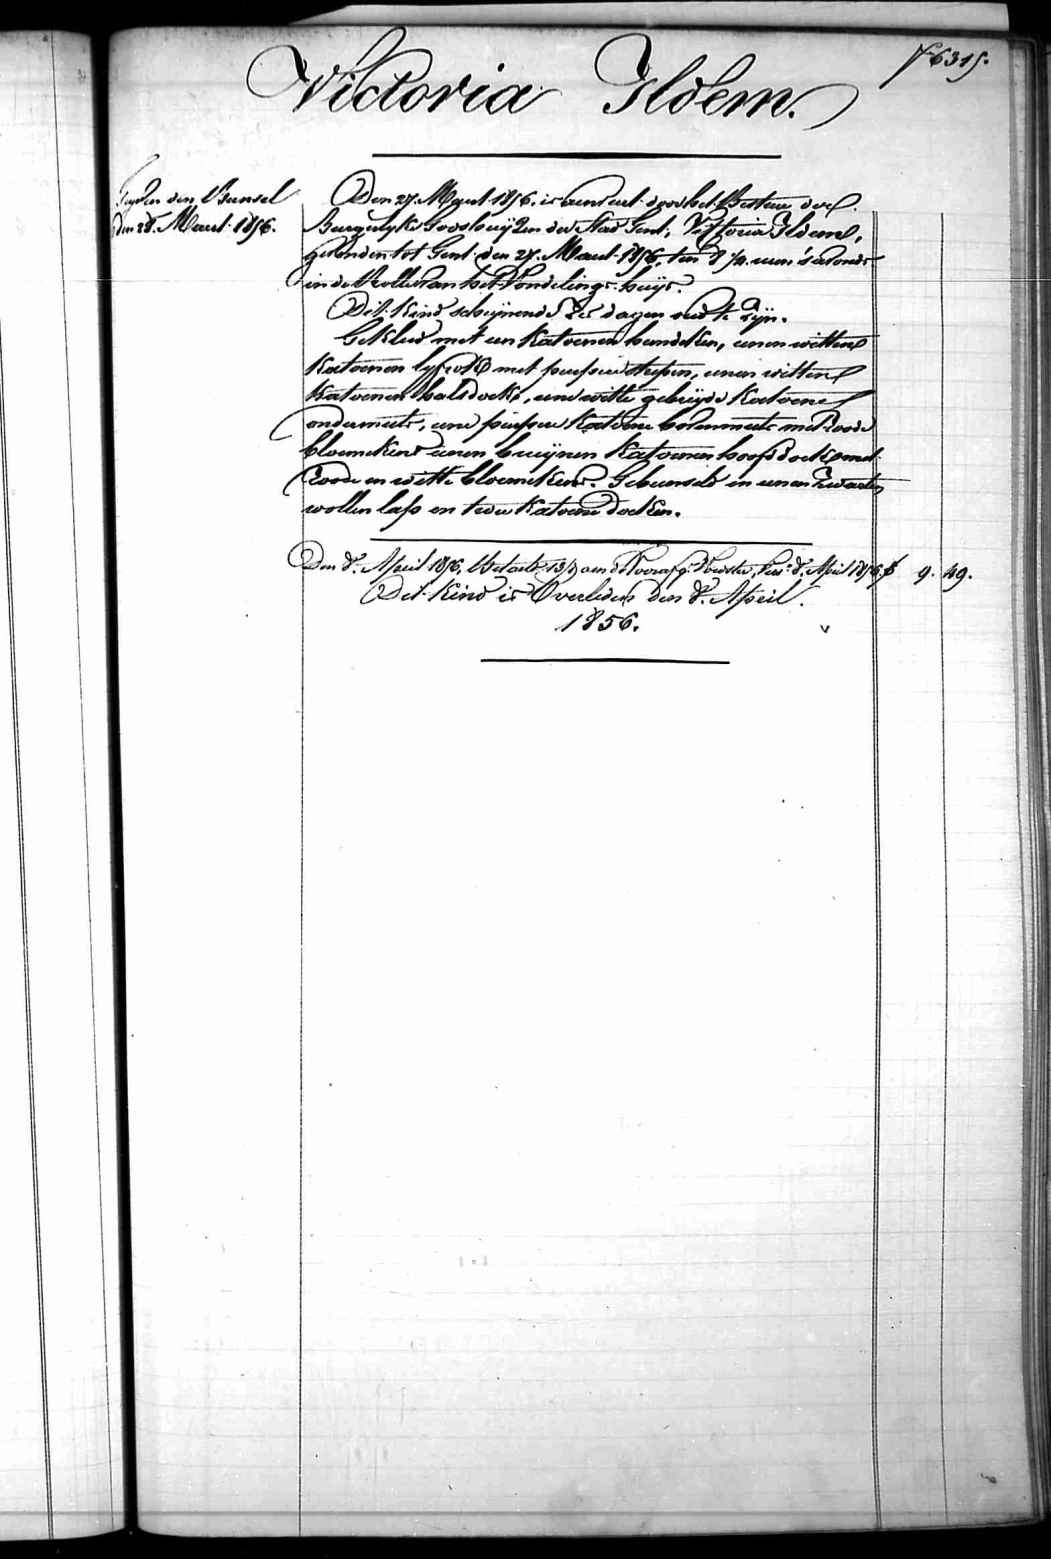 Nº 6315.
Victoria Ildem.
den Bunsel
den 28. Maart 1856.
Den 27. Maart 1856. is aenveert door het Bestuer der
Burgerlyke Godshuyzen der Stad Gent, Victoria Ildem,
gevonden tot Gent den 27. Maart 1856, ten 8 1/2 uren 's avonds
in de Rolle van het Vondelings-huys.
Dit Kind schynende Zes dagen oud te Zyn.
Gekleed met een Katoenen hemdeken, eenen witten
Katoenen lyfrok met purpere strepen, eenen witten
Katoenen halsdoek, eene witte gebreyde Katoene
ondermuts, eene purpere Katoene bovenmuts met Roode
bloemekens eenen bruynen Katoenen hoofddoek met
roode en witte bloemekens. Gebunseld in eenen Zwarten
wollen lap en twee Katoene doeken.
Den 8. April 1856, Betaelt aen de Voedster, 8. April 1856 f 9. 49.
Dit Kind is Overleden den 8. April
1856.